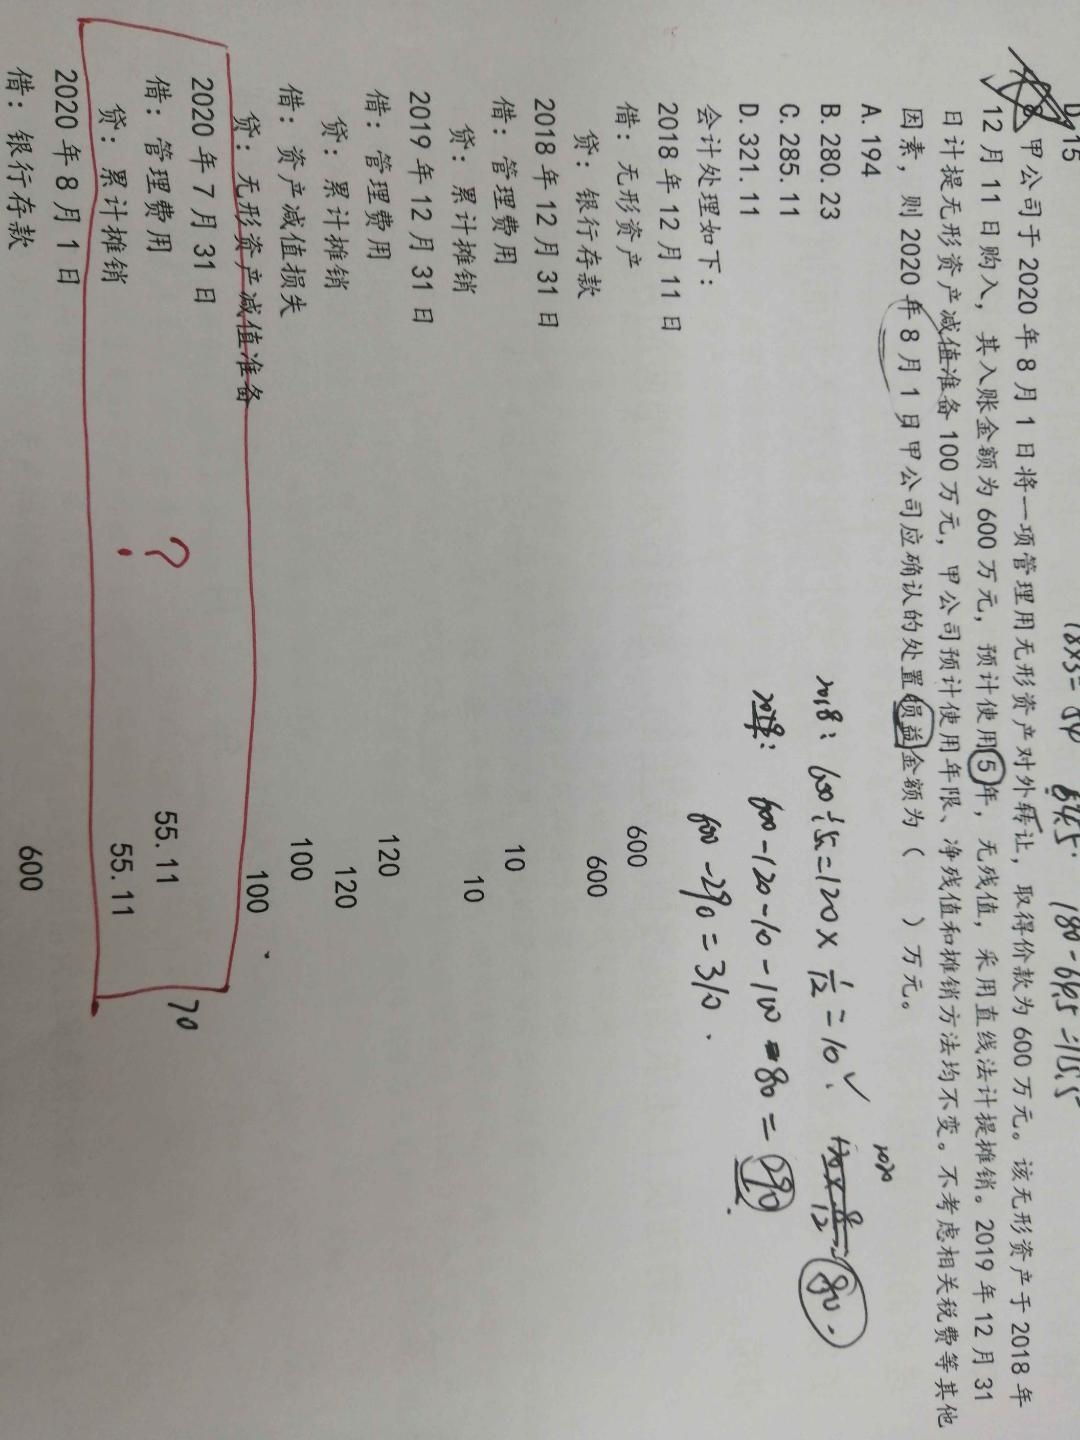 D. 15
18×3=54 54.5. 180-64.5=115.5
8. 甲公司于 2020 年 8 月 1 日将一项管理用无形资产对外转让，取得价款为 600 万元。该无形资产于 2018 年
12 月 11 日购入，其入账金额为 600 万元，预计使用 5 年，无残值，采用直线法计提摊销。2019 年 12 月 31
日计提无形资产减值准备 100 万元，甲公司预计使用年限、净残值和摊销方法均不变。不考虑相关税费等其他
因素，则 2020 年 8 月 1 日甲公司应确认的处置损益金额为（ ）万元。
A. 194
B. 280.23
C. 285.11
D. 321.11
2018: 600÷5=120×1/12=10. ✓
2020
120×8/12=80.
2019: 600-120-10-100-80=290.
600-290=310.
会计处理如下：
2018 年 12 月 11 日
借：无形资产 600
贷：银行存款 600
2018 年 12 月 31 日
借：管理费用 10
贷：累计摊销 10
2019 年 12 月 31 日
借：管理费用 120
贷：累计摊销 120
借：资产减值损失 100
贷：无形资产减值准备 100
2020 年 7 月 31 日
借：管理费用 55.11
贷：累计摊销 55.11
? 70
2020 年 8 月 1 日
借：银行存款 600